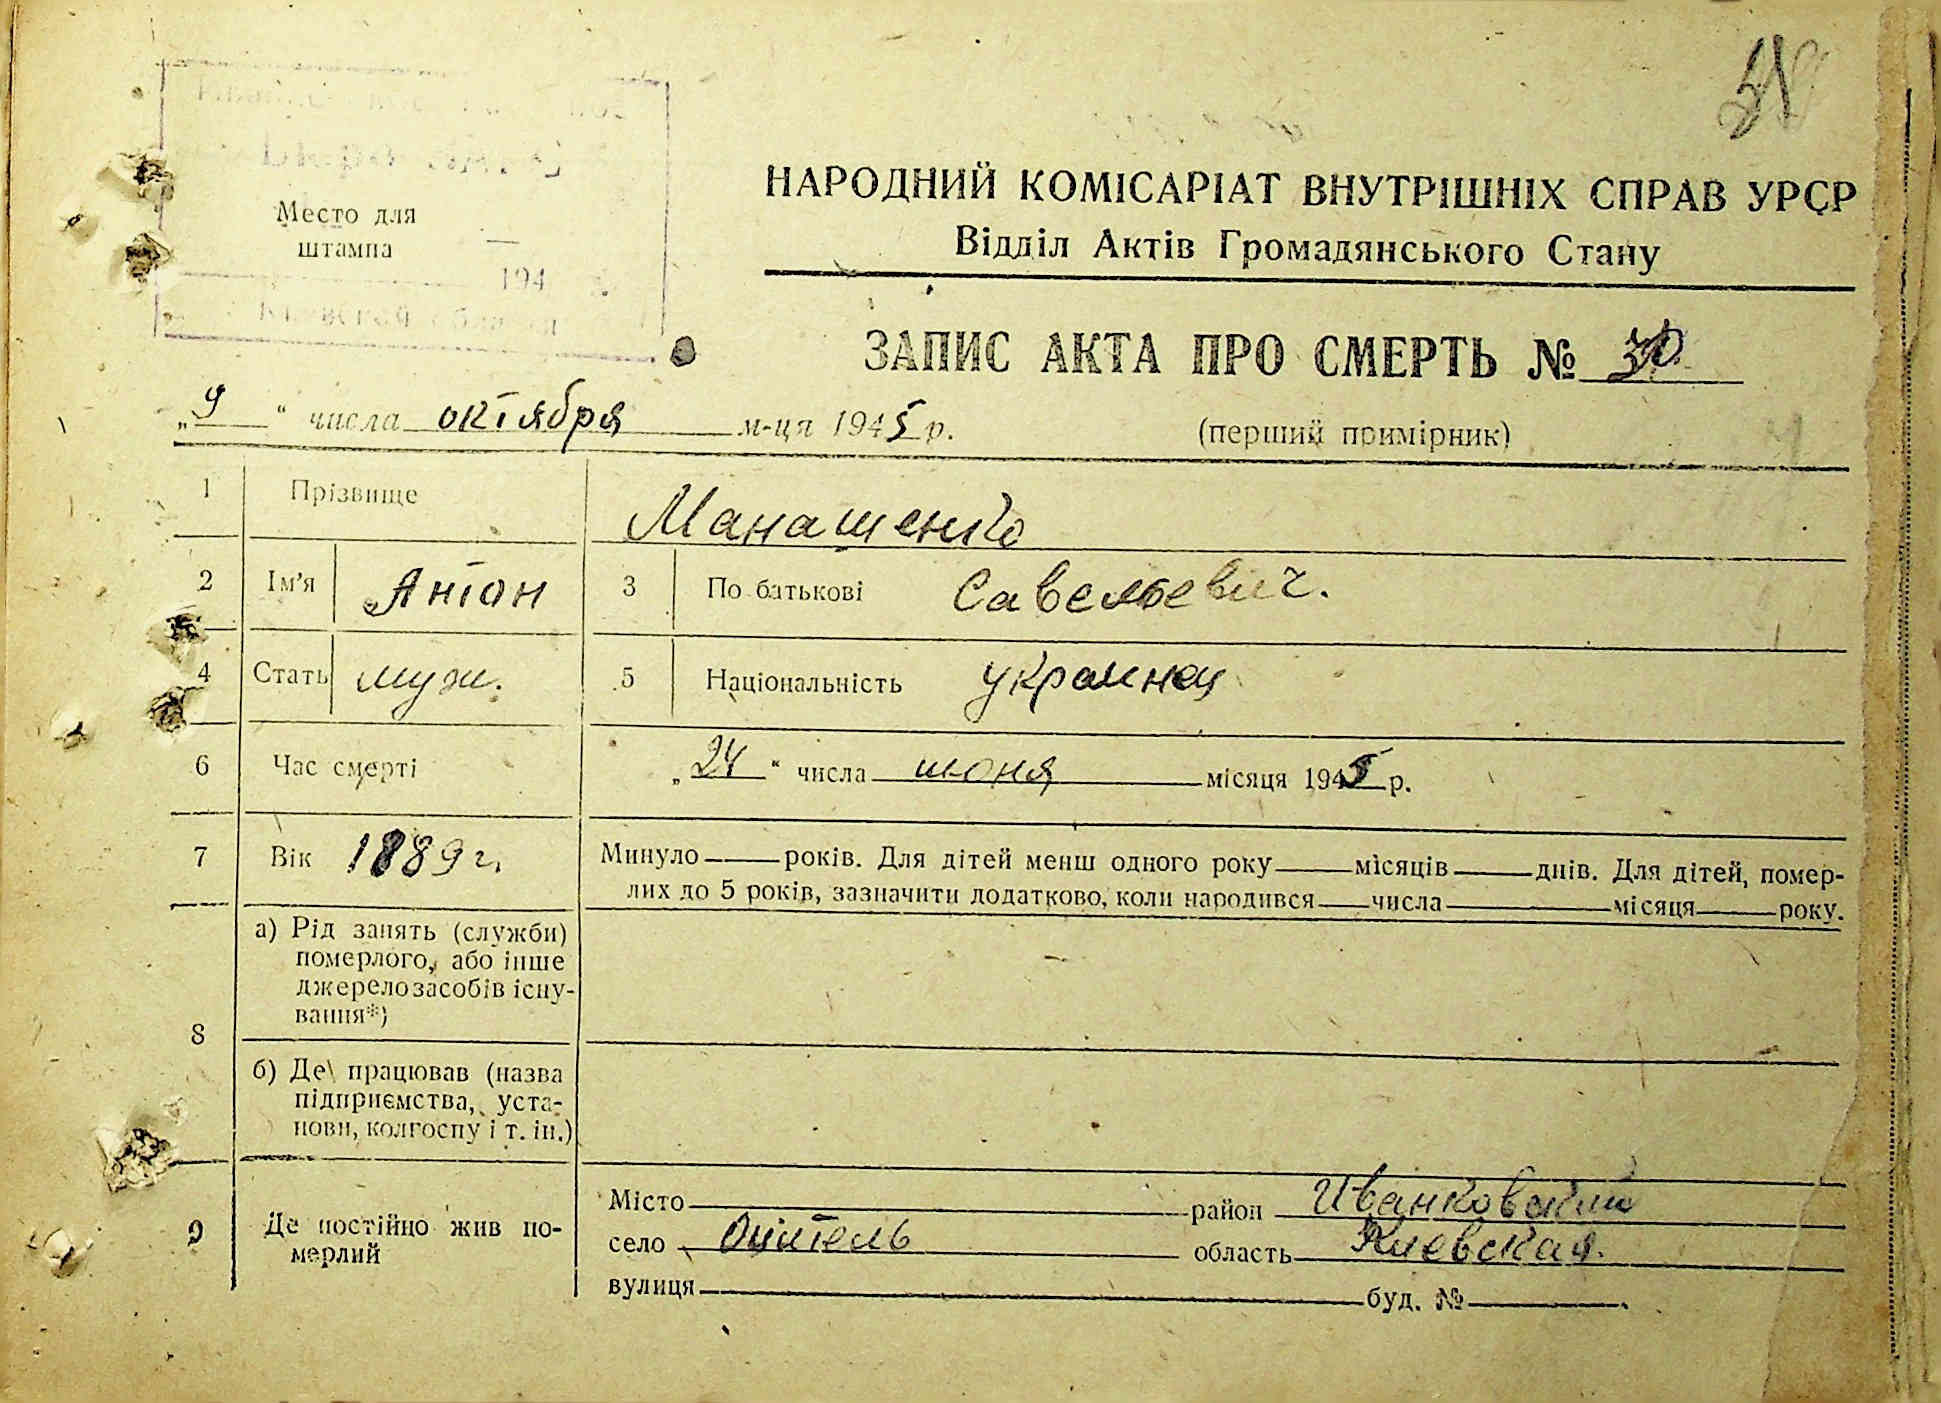 Место для
штампа
194
НАРОДНИЙ КОМІСАРІАТ ВНУТРІШНІХ СПРАВ УРСР
Відділ Актів Громадянського Стану
ЗАПИС АКТА ПРО СМЕРТЬ № 30
„9“ числа октября м-ця 1945 р.
(перший примірник)
1 Прізвище Манашенко
2 Ім'я Антон 3 По батькові Савельевич.
4 Стать муж. 5 Національність украинец
6 Час смерті „24“ числа июня місяця 1945 р.
7 Вік 1889 г. Минуло року років. Для дітей менш одного року місяців днів. Для дітей, помер-
лих до 5 років, зазначити додатково, коли народився числа місяця року.
8 а) Рід занять (служби)
померлого, або інше
джерело засобів існу-
вання*)
б) Де працював (назва
підприємства, уста-
нови, колгоспу і т. ін.)
9 Де постійно жив по-
мерлий
Місто район Иванковский
село область Киевская.
вулиця буд. №